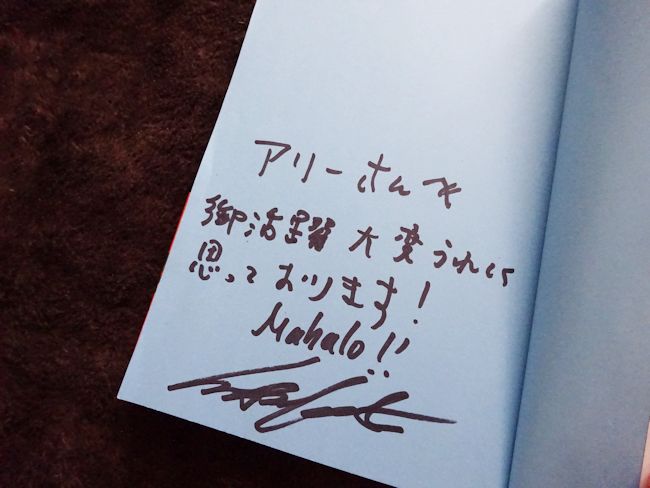 アリーさんへ
御活躍大変うれしく
思っております!
Mahalo!!